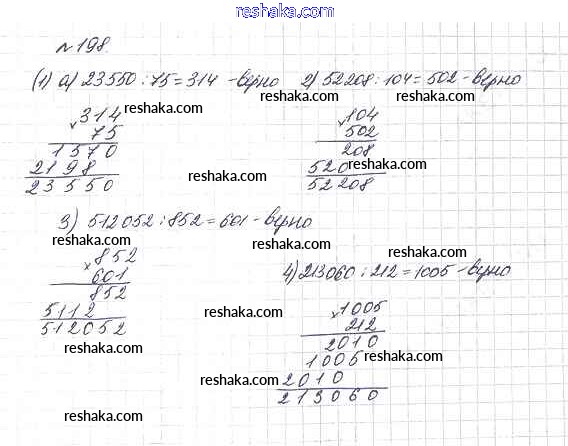 reshaka.com
№198
(1) а) 23550:75=314 - верно
2) 52208:104=502 - верно
reshaka.com
reshaka.com
×314
75
reshaka.com
1570
2198
23550
reshaka.com
×104
502
reshaka.com
208
520
reshaka.com
52208
3) 512052:852=601 - верно
reshaka.com
reshaka.com
×852
601
reshaka.com
852
5112
512052
reshaka.com
reshaka.com
4) 213060:212=1005 - верно
reshaka.com
×1005
212
reshaka.com
2010
1005
reshaka.com
2010
213060
reshaka.com
reshaka.com